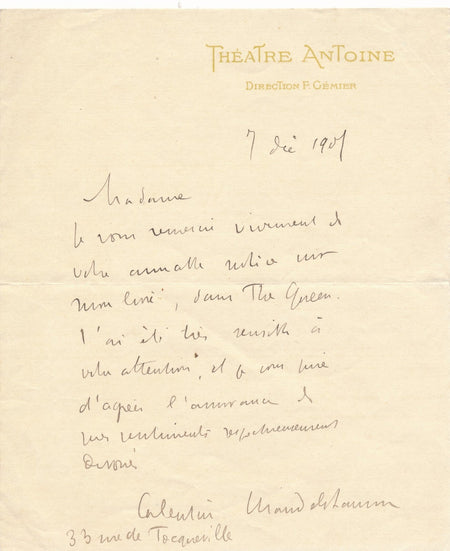 THÉATRE ANTOINE
DIRECTION F. GÉMIER
7 déc 190
Madame
Je vous remercie vivement de
votre aimable notice sur
mon livre, dans The Queen.
J'ai été très sensible à
votre attention, et je vous prie
d'agréer l'assurance de
mes sentiments respectueusement
dévoués
Valentin Mandelstamm
33 rue de Tocqueville